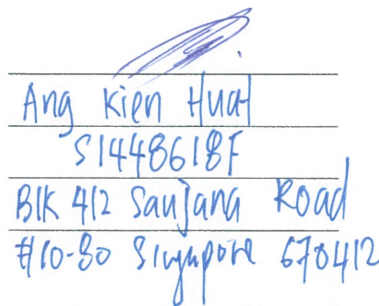 Ang Kien Huat
S1448618F
Blk 412 Saujana Road
#10-80 Singapore 670412